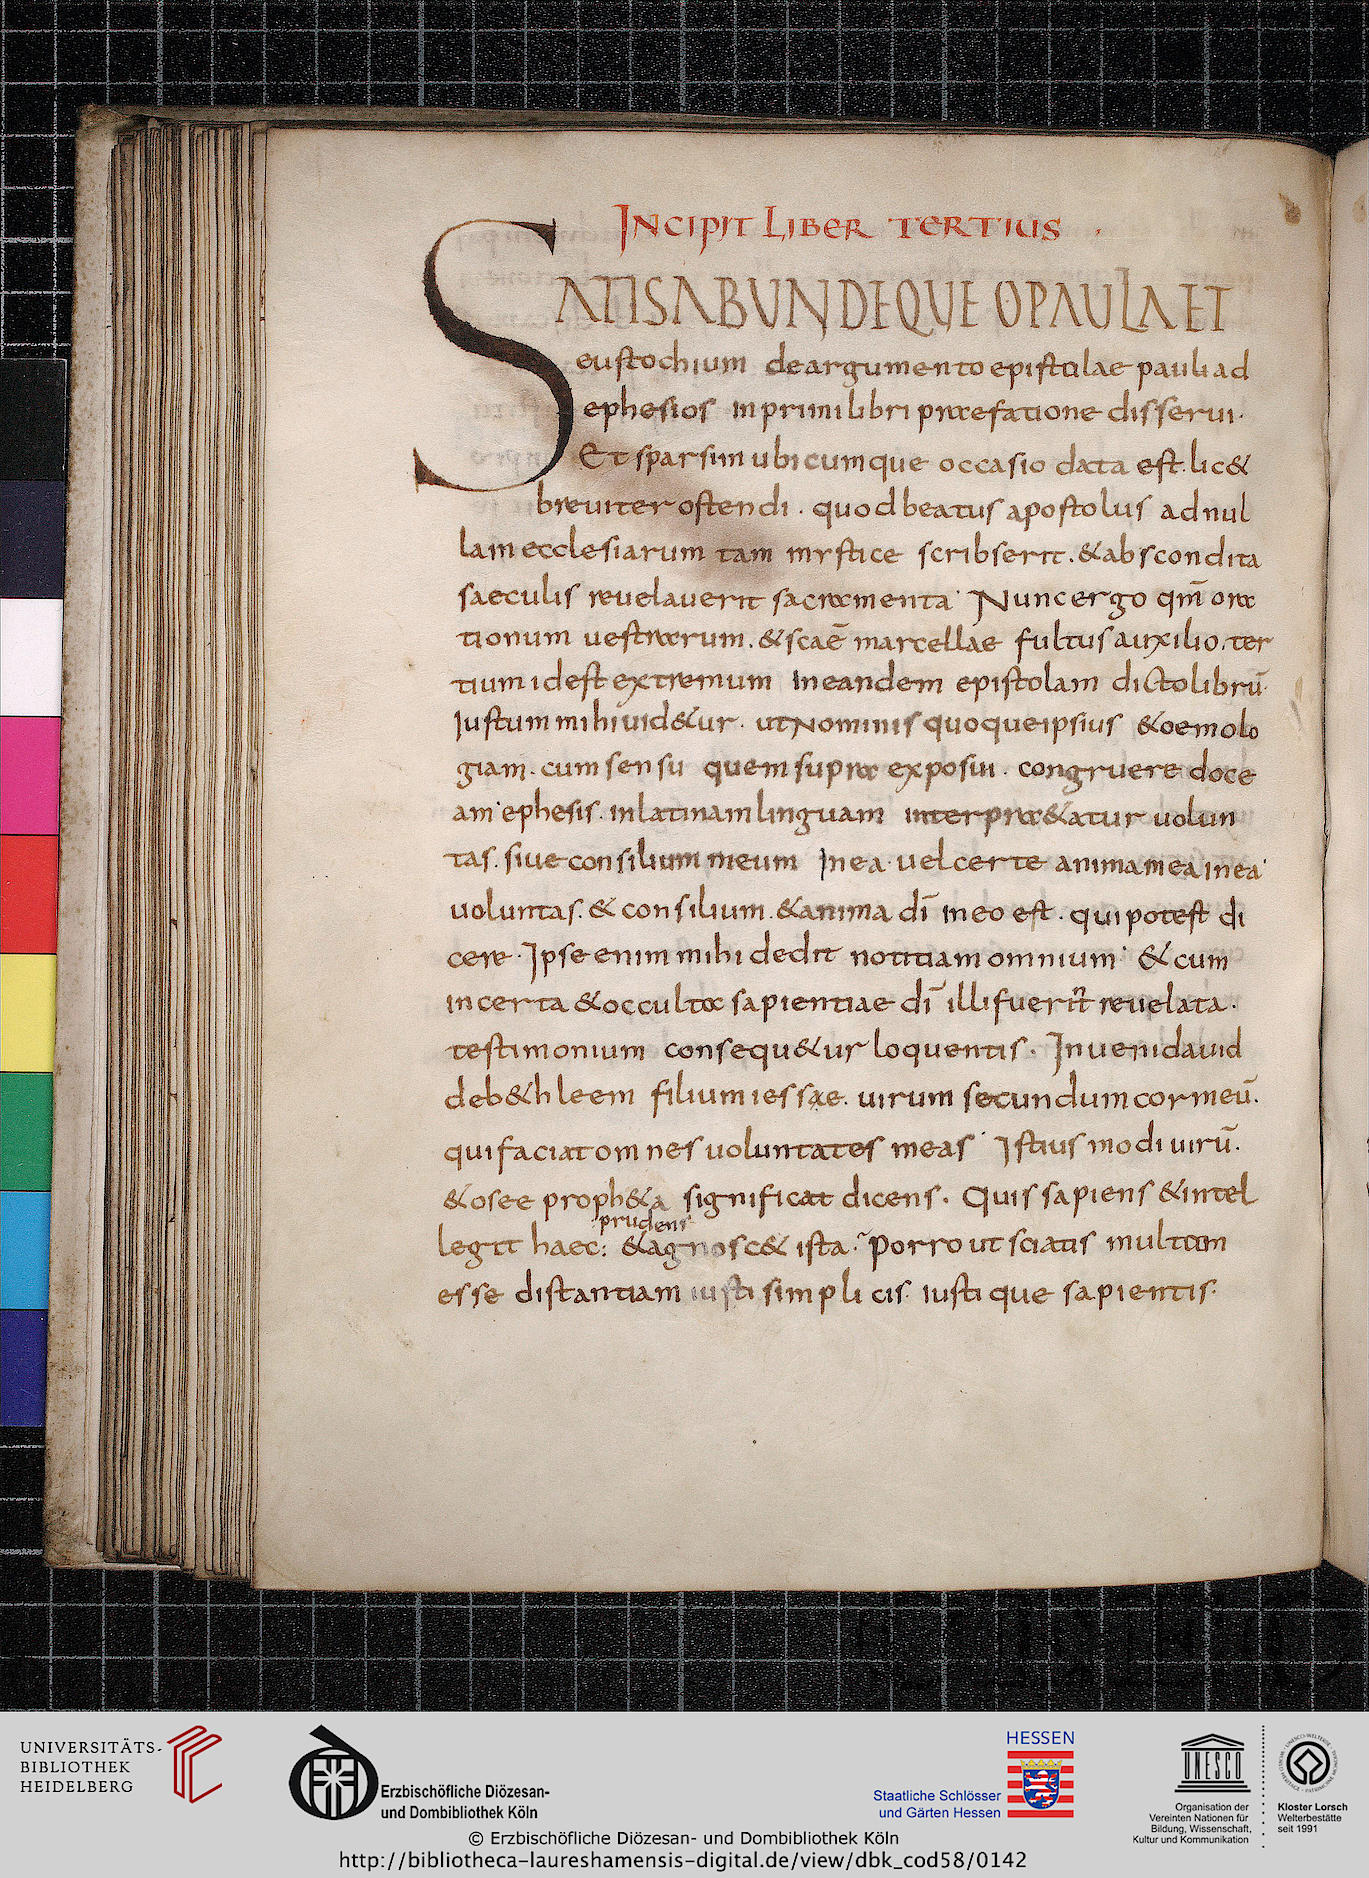 INCIPIT LIBER TERTIUS
SATIS ABUNDEQUE O PAULA ET
eustochium de argumento epistulae pauli ad
ephesios in primi libri praefatione disserui·
Et sparsim ubicumque occasio data est. lic&
breuiter ostendi · quod beatus apostolus ad nul
lam ecclesiarum tam mystice scribserit. & abscondita
saeculis reuelauerit sacramenta· Nunc ergo qm̄ ora
tionum uestrarum. & scāe marcellae fultus auxilio. ter
tium id est extremum in eandem epistolam dicto librū·
Iustum mihi uid&ur· ut nominis quoque ipsius &oemolo
giam. cum sensu quem supra exposui. congruere doce
am· ephesis. in latinam linguam interpra&atur uolun
tas. siue consilium meum In ea· uel certe anima mea in ea·
uoluntas. & consilium. & anima dī in eo est. qui potest di
cere· Ipse enim mihi dedit notitiam omnium· & cum
incerta & occulta sapientiae dī illi fuerīt reuelata·
testimonium consequ&ur loquentis. Inueni dauid
de b&hleem filium iessae. uirum secundum cor meū.
qui faciat omnes uoluntates meas· Istius modi uirū.
& osee proph&a significat dicens. Quis sapiens & intel
prudens
legit haec: & agnosc& ista· Porro ut sciatis multam
esse distantiam iusti simplicis· iustique sapientis·
UNIVERSITÄTS-
BIBLIOTHEK
HEIDELBERG
Erzbischöfliche Diözesan-
und Dombibliothek Köln
HESSEN
Staatliche Schlösser
und Gärten Hessen
UNESCO
Organisation der
Vereinten Nationen für
Bildung, Wissenschaft,
Kultur und Kommunikation
Kloster Lorsch
Welterbestätte
seit 1991
© Erzbischöfliche Diözesan- und Dombibliothek Köln
http://bibliotheca-laureshamensis-digital.de/view/dbk_cod58/0142